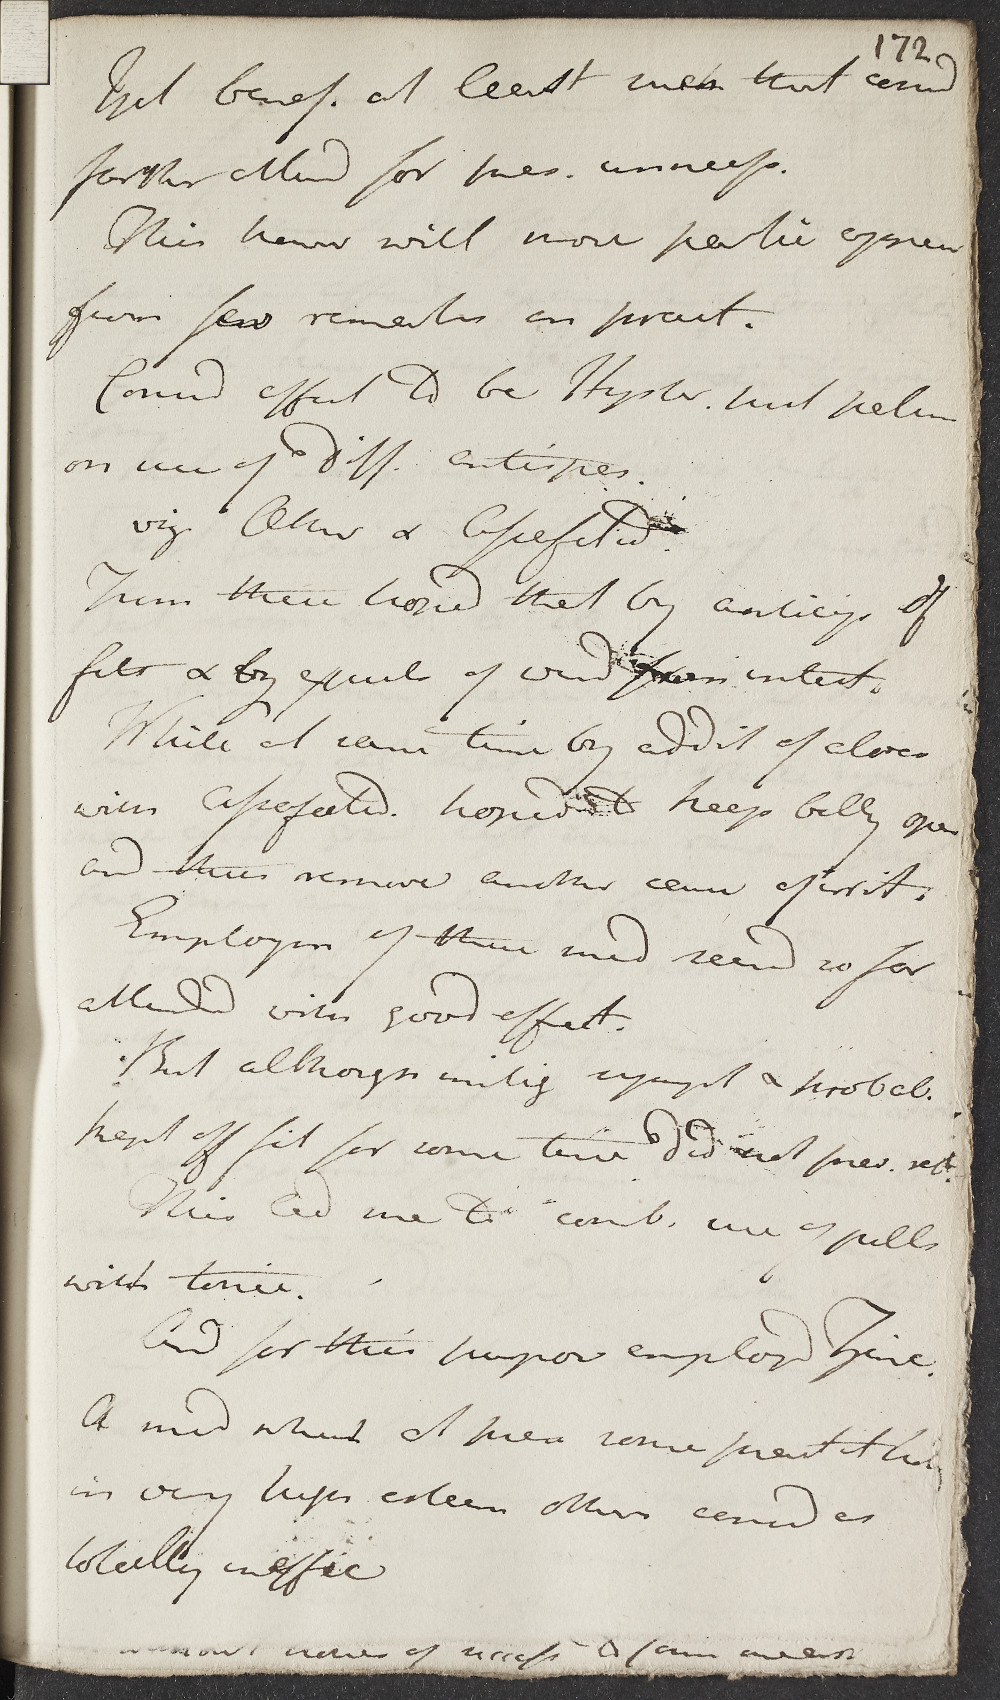 172
Yet benef. at least such that consid
farther attend for pres. unnecess.
This however will more partic appear
from few remarks on pract.
Consid effect to be Hyster. put
on use of diff. antispas.
viz Æther & Assafetid.
From these hoped that by anticip of
fits & by expuls of wind from intest.
While at same time by addit of aloes
with Assafoetid. hoped to keep belly open
and thus remove another cause of irrit.
Employm of these med seemd so far
attended with good effect.
But although mitig sympt & probab.
kept off fit for some time did not prev. ret.
This led me to comb. use of pills
with tonic.
And for this purpose employd Zinc.
A med which at pres some pract hold
in very high esteem others consid as
totally ineffic
without hopes of success to some cases